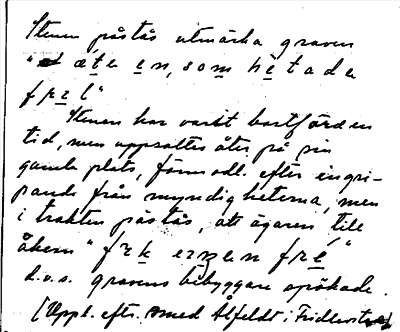 Stenen påstås utmärka graven
"et æte en, som hetade
fræl"
Stenen har varit bortförd en
tid, men uppsattes åter på sin
gamla plats, förmodl. efter ingri-
pande från myndigheterna, men
i trakten påstås, att ägaren till
åkern "
d.v.s. gravens bebyggare spökade.
(Uppl. efter smed Ålfeldt i Fridlevstad)